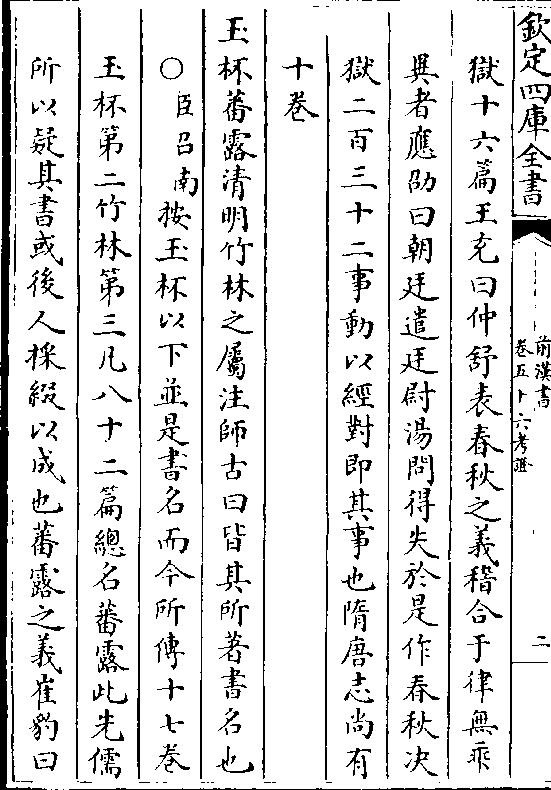 欽定四庫全書
前漢書
卷五十六考證
二
獄十六篇王充曰仲舒表春秋之義稽合于律無乖
異者應劭曰朝廷遣廷尉湯問得失於是作春秋決
獄二百三十二事動以經對即其事也隋唐志尚有
十卷
玉杯蕃露清明竹林之屬注師古曰皆其所著書名也
○臣召南按玉杯以下並是書名而今所傳十七卷
玉杯第二竹林第三凡八十二篇總名蕃露此先儒
所以疑其書或後人採綴以成也蕃露之義崔豹曰